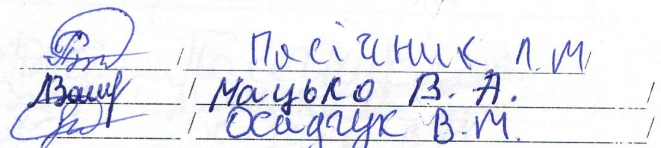 / Пасічник Л.М /
/ Мацько В. А. /
/ Осадчук В.М. /